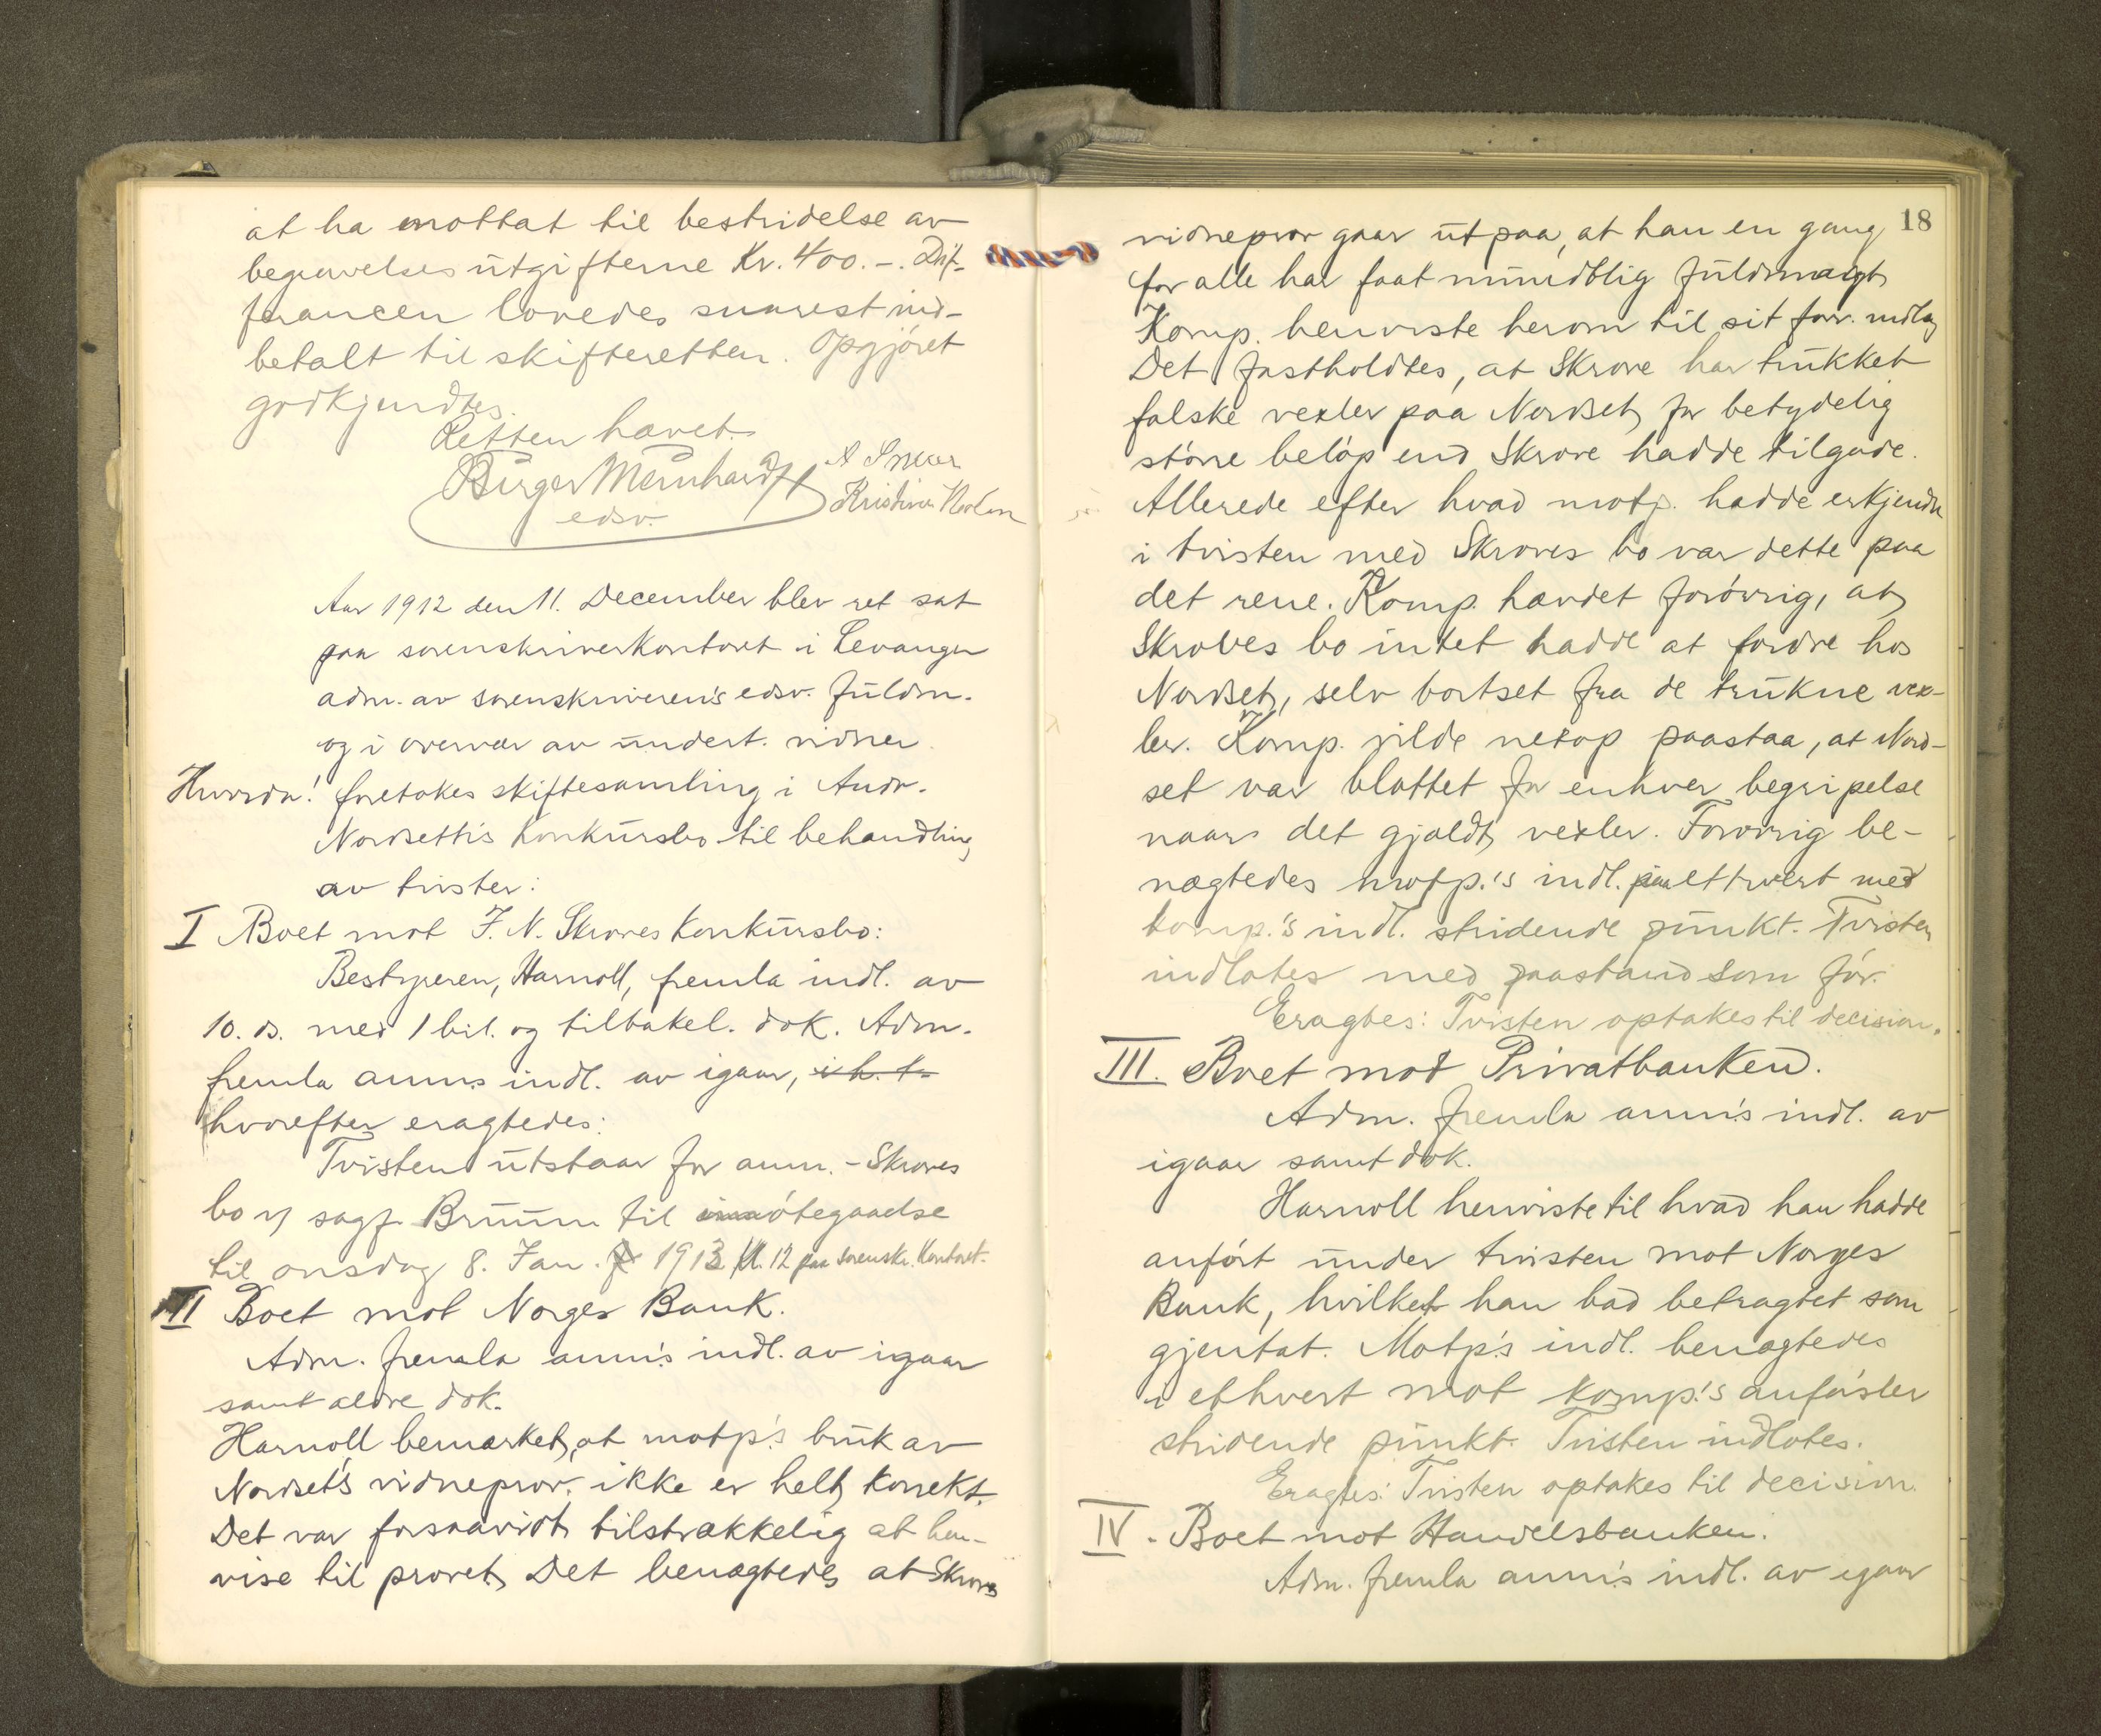 at ha mottat til bestridelse av
begravelsesutgifterne Kr. 400.-. Dif-
ferancen lovedes snarest ind-
betalt til skifteretten. Opgjøret
godkjendtes.
Retten hævet.
Birger Meinhardt
edsv.
Aar 1912 den 11. December blev ret sat
paa sorenskriverkontoret i Levanger
adm. av sorenskriveren's edsv. fuldm.
og i overvær av undert. vidner.
Hvorda! foretokes skiftesamling i Andr.
Nordsettis konkursbo til behandling
av tvister:
I Boet mot J. N. Skroves konkursbo:
Bestyreren, Harnoll, fremla indl. av
10. ds. med 1 bil. og tilbakel. dok. Adm.
fremla anm.s indl. av igaar, i h. t.
hvorefter eragtedes:
Tvisten utstaar for anm. - Skroves
bo v/ sagf. Bruun til imøtegaaelse
til onsdag 8. Jan. 1913 kl. 12 paa sorenskr. kontoret.
II Boet mot Norges Bank.
Adm. fremla anm's indl. av igaar
samt ældre dok.
Harnoll bemærket, at motp.'s bruk av
Nordset's vidneprov. ikke er helt korrekt.
Det var forsaavidt tilstrækkelig at hen-
vise til provet. Det benægtedes at Skroves
18
vidneprov gaar ut paa, at han en gang
for alle har faat mundtlig fuldmagt
Komp. henviste herom til sit forr. indlæg
Det fastholdtes, at Skrove har trukket
falske vexler paa Nordset for betydelig
større beløp end Skrove hadde tilgode.
Allerede efter hvad motp. hadde erkjendt
i tvisten med Skroves bo var dette paa
det rene. Komp. hævdet forøvrig, at
Skroves bo intet hadde at fordre hos
Nordset, selv bortset fra de trukne vex-
ler. Komp. vilde netop paastaa, at Nord-
set var blottet for enhver begripelse
naar det gjaldt vexler. Forøvrig be-
nægtedes motp.'s indl. paa ettvert med
komp.'s indl. stridende punkt. Tvisten
indlotes med paastand som før.
Eragtes: Tvisten optakes til decision.
III. Boet mot Privatbanken.
Adm. fremla anm's indl. av
igaar samt dok.
Harnoll henviste til hvad han hadde
anført under tvisten mot Norges
Bank, hvilket han bad betragtet som
gjentat. Motp's indl. benægtedes
i ethvert mot komp.'s anførsler
stridende punkt. Tvisten indlotes.
Eragtes: Tvisten optakes til decision.
IV. Boet mot Handelsbanken.
Adm. fremla anm's indl. av igaar